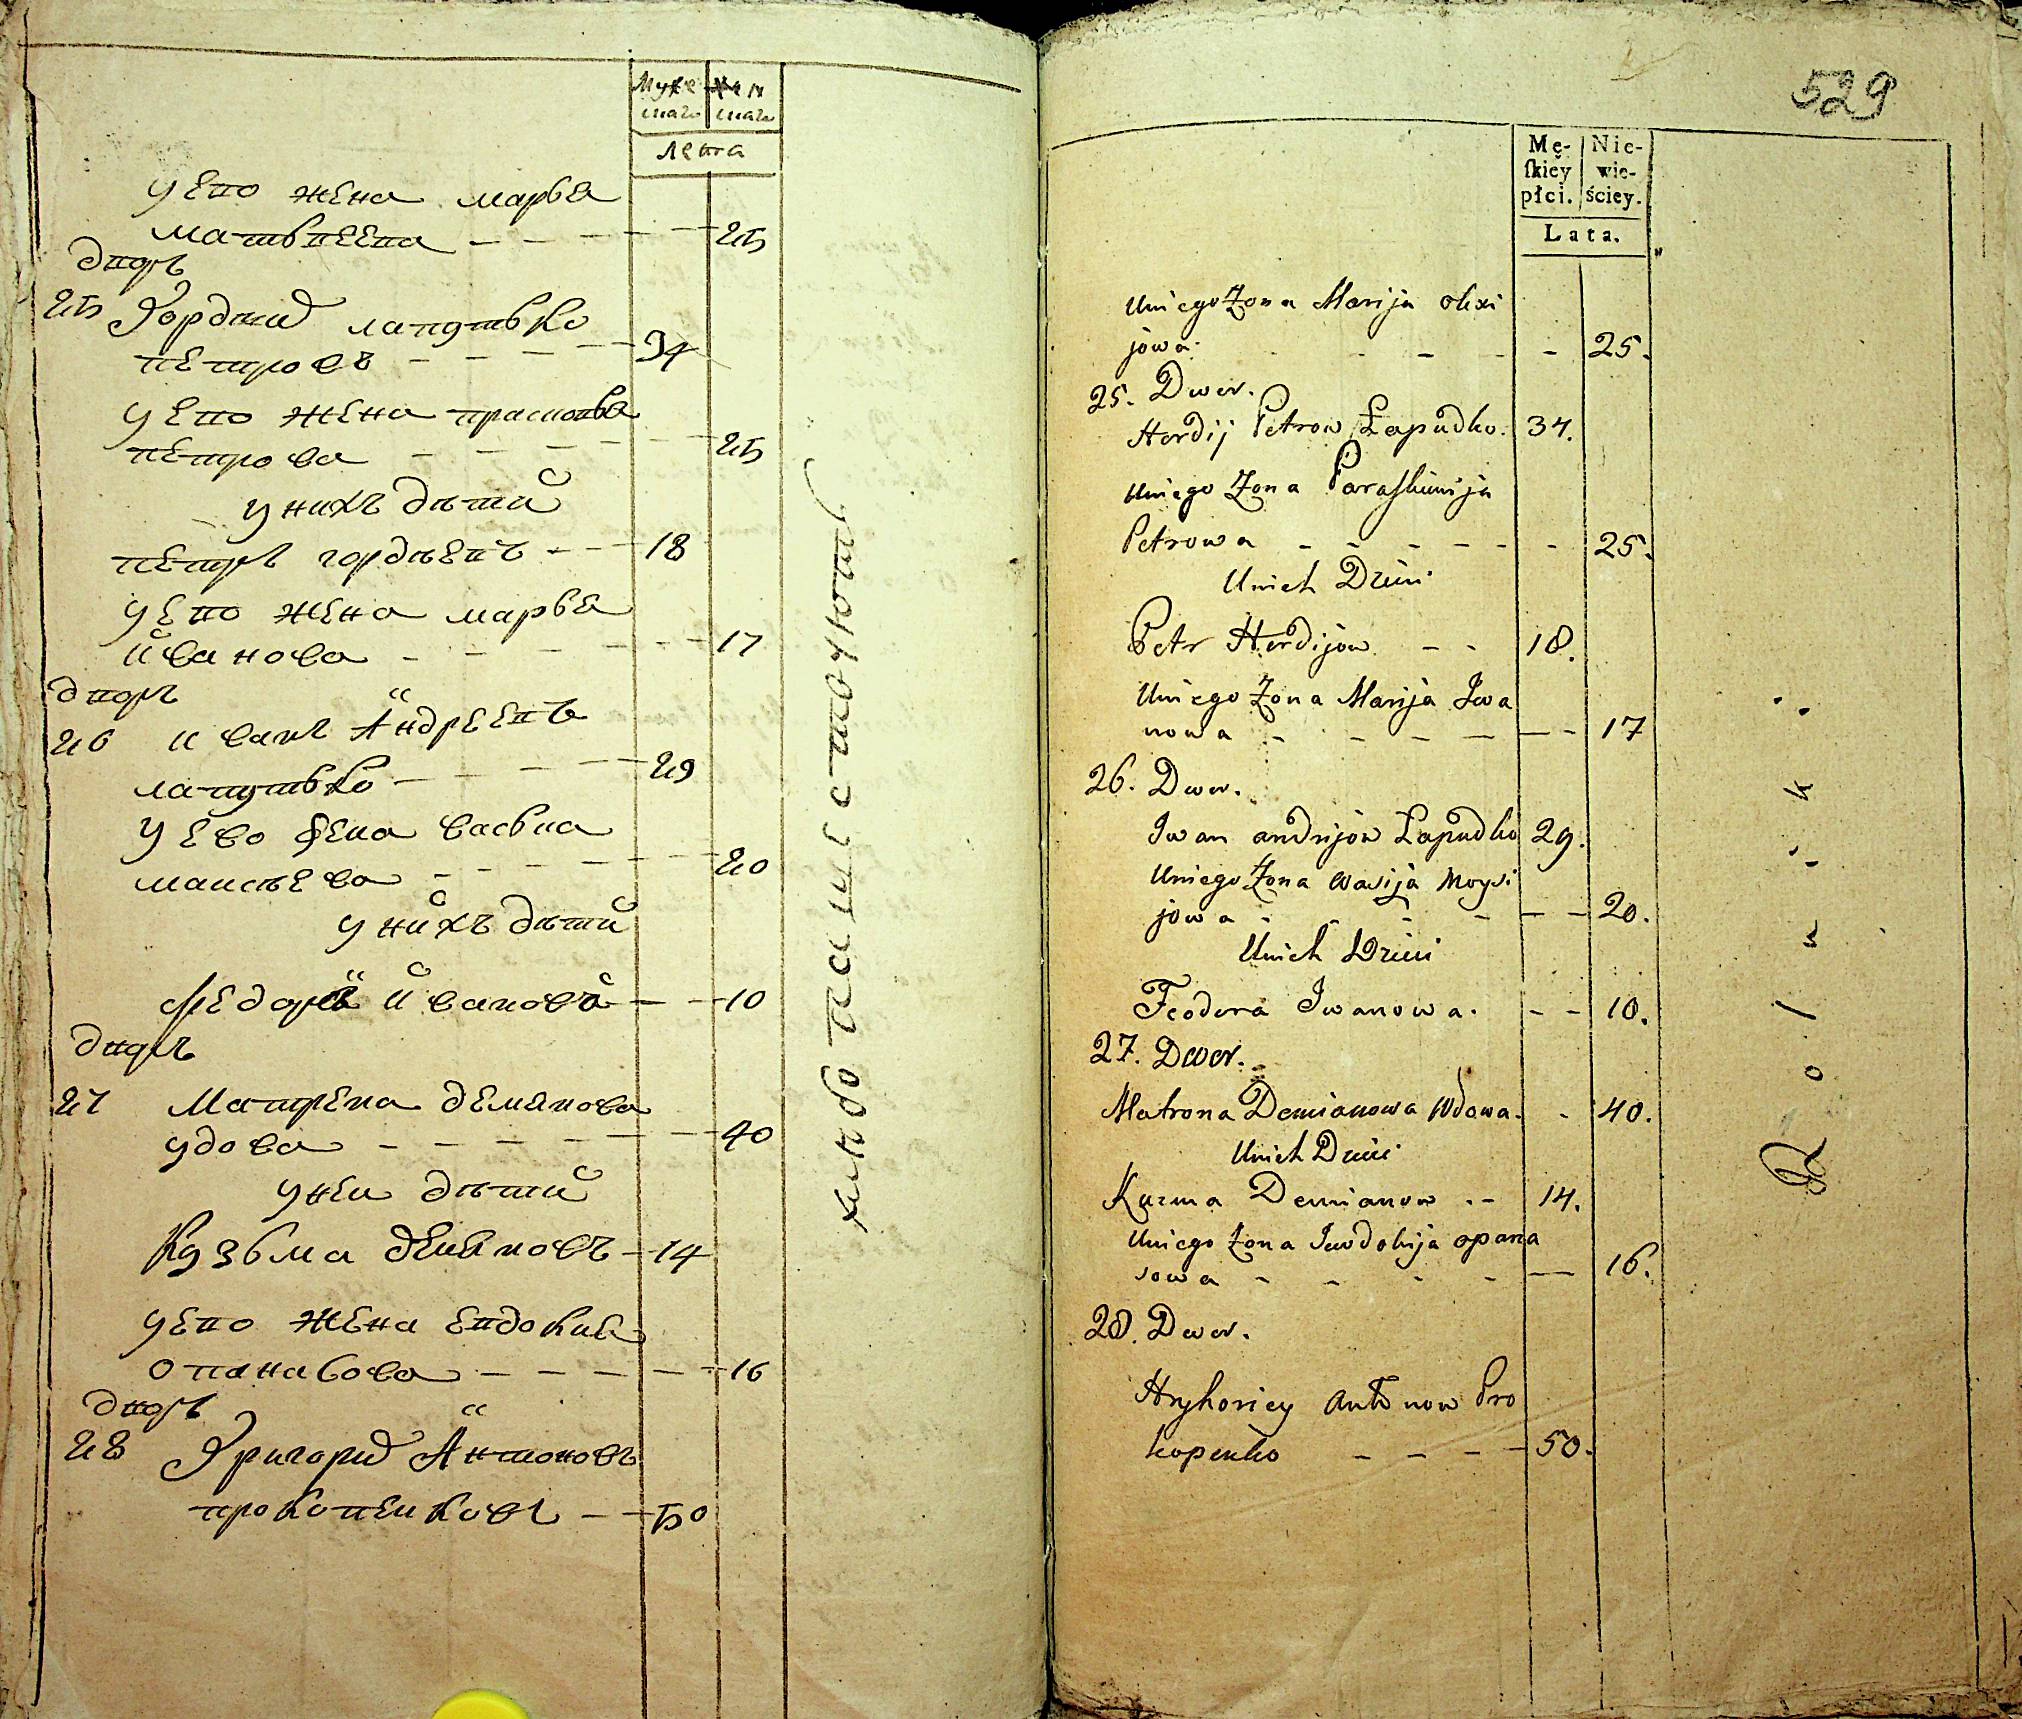 Муже женс
скаго скаго
лѣта
у ево жена марья
матвѣева - - - - - 25
дворъ
25 Гордий лапутько
петровъ - - - - 34
у ево жена прасковья
петрова - - - - - 25
у нихъ дѣти
петръ гордѣевъ - - - 18
у ево жена марья
ивановa - - - - - 17
дворъ
26 иванъ Андреевъ
лапутько - - - - 29
у ево жена васьиа
маисѣева - - - - - 20
у нихъ дѣти
Федора иванова - - 10
дворъ
27 Матрена демянова
удова - - - - - - 40
у неи дѣти
Кузьма демяновъ - 14
у ево жена евдокия
опанасова - - - - - 16
дворъ
28 Григорий Антоновъ
прокопенковъ - - 50
хлебопашествуютъ
529
Mę- Nie-
ſkiey wie-
płci. ściey.
Lata.
Uniego Zona Marija olexi
jowa - - - - 25.
25. Dwor.
Hordij Petrow Łapudko. 34.
Uniego Zona Paraſkiewija
Petrowa - - - - - - 25.
Unich Dzieci
Petr Hordijow - - 18.
Uniego Zona Marija Iwa
nowa - - - - - - 17
26. Dwor.
Iwan andrijow Łapudko 29.
Uniego Zona Wasija Moysi
jowa - - - - - 20.
Unich Dzieci
Feodora Iwanowa. - - 10.
27. Dwor.
Matrona Demianowa Wdowa. - 40.
Unich Dzieci
Kuzma Demianow - - 14.
Uniego Zona Iwdokija opana
sowa - - - - - 16.
28. Dwor.
Hryhoriey Antonow Pro
kopenko - - - - 50.
Rolnik: